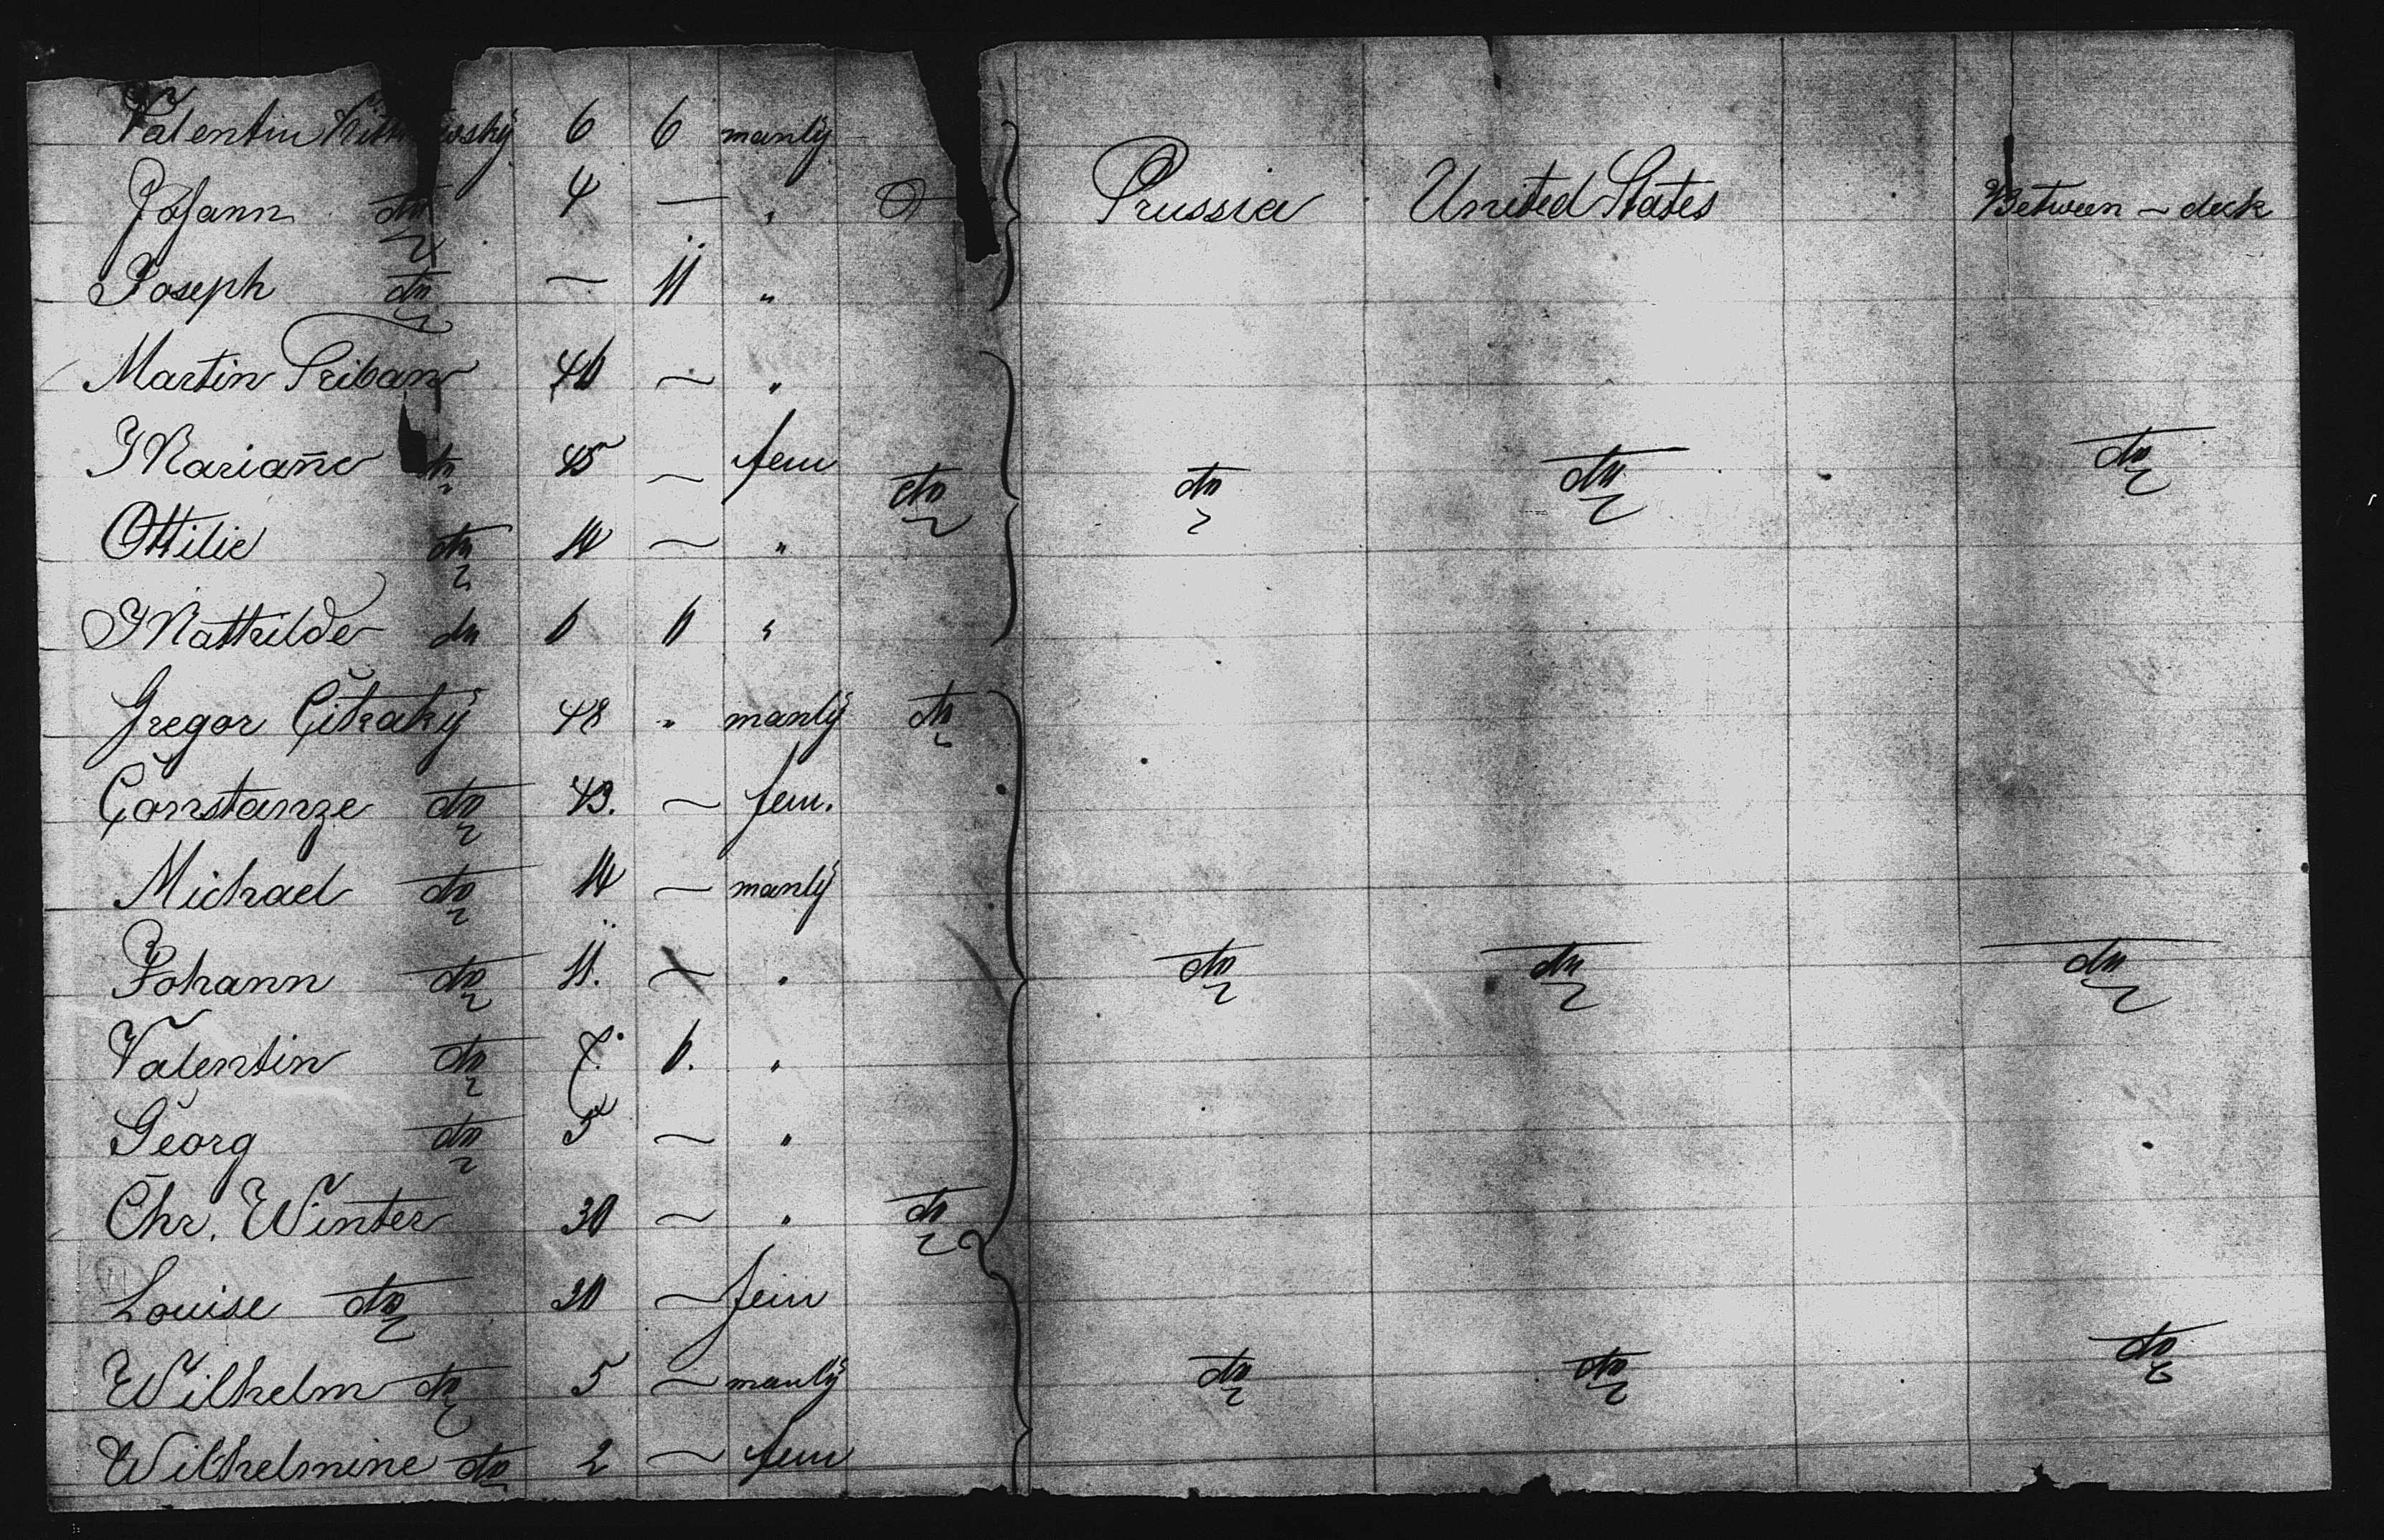 Valentin 6 6 manlÿ
Johann do 4 — " Prussia United States Between - deck
Joseph do — 11 "
Martin 46 — "
Mariañe do 45 — fem do do do do
Ottilie do 14 — "
Mathilde do 6 6 "
Gregor 48 " manlÿ do
Constanze do 43. — fem.
Michael do 14 — manlÿ
Johann do 11. — " do do do
Valentin do 7. 6. "
Georg do 5 — "
Chr. Winter 30 — " do
Louise do 30 — fem
Wilhelm do 5 — manlÿ do do do
Wilhelmine do 2 — fem